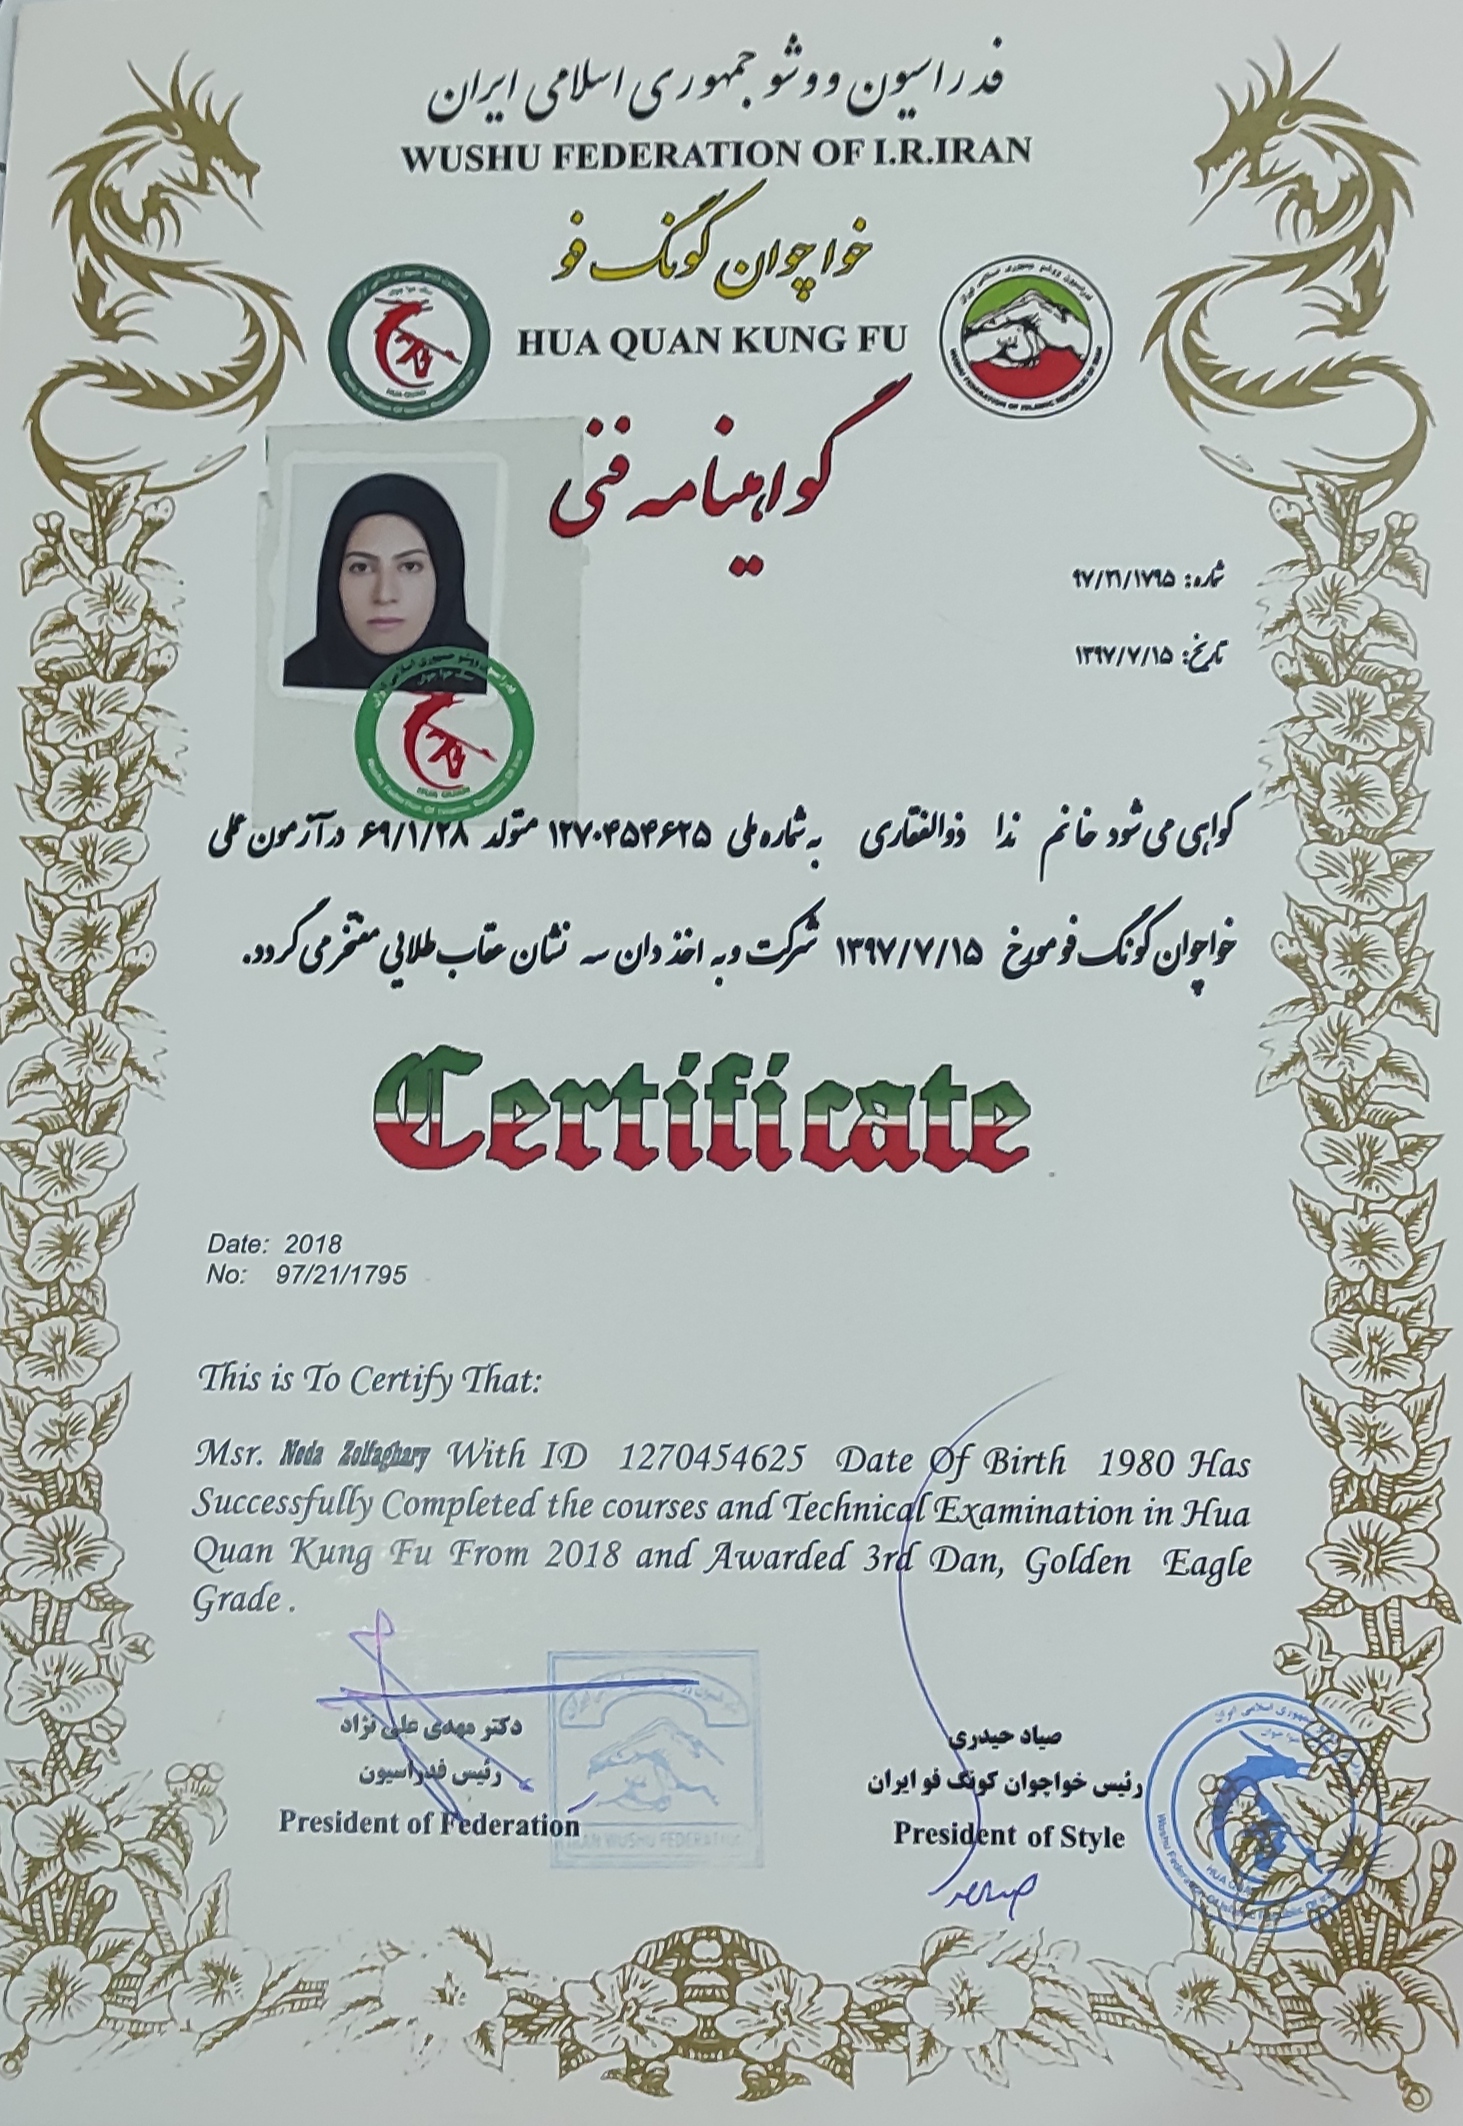 فدراسیون ووشو جمهوری اسلامی ایران
WUSHU FEDERATION OF I.R.IRAN
خواچوان کونگ فو
HUA QUAN KUNG FU
گواهینامه فنی
شماره: ۹۷/۲۱/۱۷۹۵
تاریخ: ۱۳۹۷/۷/۱۵
گواهی می شود خانم ندا ذوالفقاری به شماره ملی ۱۲۷۰۴۵۴۶۲۵ متولد ۶۹/۱/۲۸ در آزمون علی
خواچوان کونگ فو مورخ ۱۳۹۷/۷/۱۵ شرکت و به اخذ دان سه نشان عقاب طلایی مفتخر می گردد.
Certificate
Date: 2018
No: 97/21/1795
This is To Certify That:
Msr. Neda Zolfaghary With ID 1270454625 Date Of Birth 1980 Has
Successfully Completed the courses and Technical Examination in Hua
Quan Kung Fu From 2018 and Awarded 3rd Dan, Golden Eagle
Grade .
دکتر مهدی علی نژاد
رئیس فدراسیون
President of Federation
IRAN WUSHU FEDERATION
صیاد حیدری
رئیس خواچوان کونگ فو ایران
President of Style